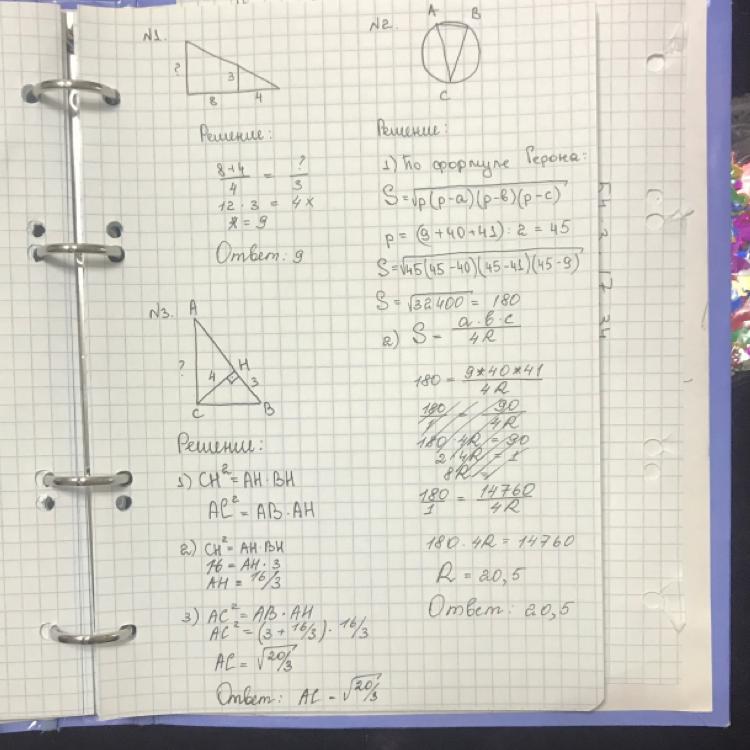 N1.
?
3
8 4
Решение:
8+4/4 = ?/3
12 · 3 = 4x
x = 9
Ответ: 9
N2.
A B
C
Решение:
1) По формуле Герона:
S=√p(p-a)(p-в)(p-c)
p = (9+40+41) : 2 = 45
S=√45(45-40)(45-41)(45-9)
S=√32400 = 180
2) S = a·в·c/4R
180 = 9*40*41/4R
180/1 = 90/4R
180 · 4R = 90
180/1 = 14760/4R
180 · 4R = 14760
R = 20,5
Ответ: 20,5
N3.
A
?
4 H 3
C B
Решение:
1) CH² = AH · BH
AC² = AB · AH
2) CH² = AH · BH
16 = AH · 3
AH = 16/3
3) AC² = AB · AH
AC² = (3 + 16/3) · 16/3
AC = √20/3
Ответ: AC = √20/3